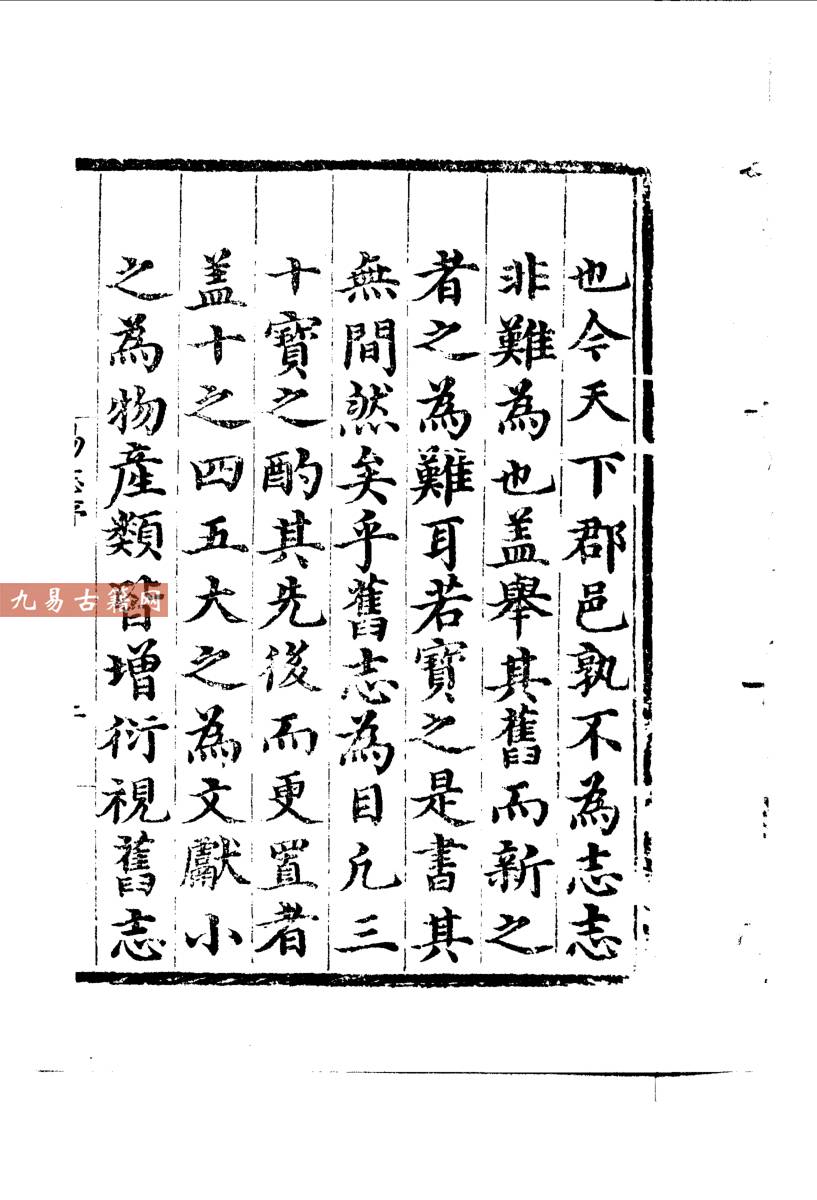 也今天下郡邑孰不為志志
非難為也盖舉其舊而新之
者之為難耳若寳之是書其
無間然矣乎舊志為目凢三
十寳之酌其先後而更置者
盖十之四五大之為文獻小
之為物產類皆增衍視舊志
九易古籍网